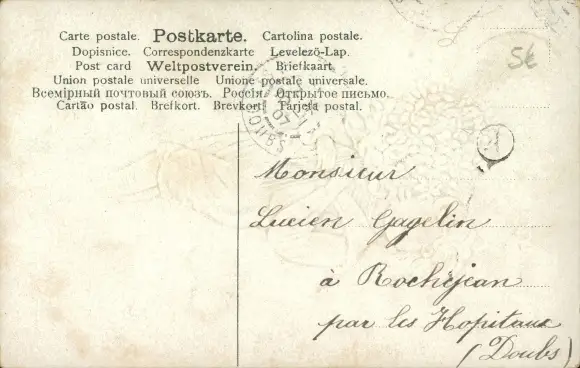 Carte postale. Postkarte. Cartolina postale.
Dopisnice. Correspondenzkarte Levelező-Lap.
Post card Weltpostverein. Briefkaart
Union postale universelle Unione postale universale.
Всемірный почтовый союзъ. Россія. Открытое письмо.
Cartão postal. Brefkort. Brevkort. Tarjeta postal.
5€
07
DOUBS
Monsieur
Lucien Gagelin
à Rochejean
par les Hopitaux
(Doubs)